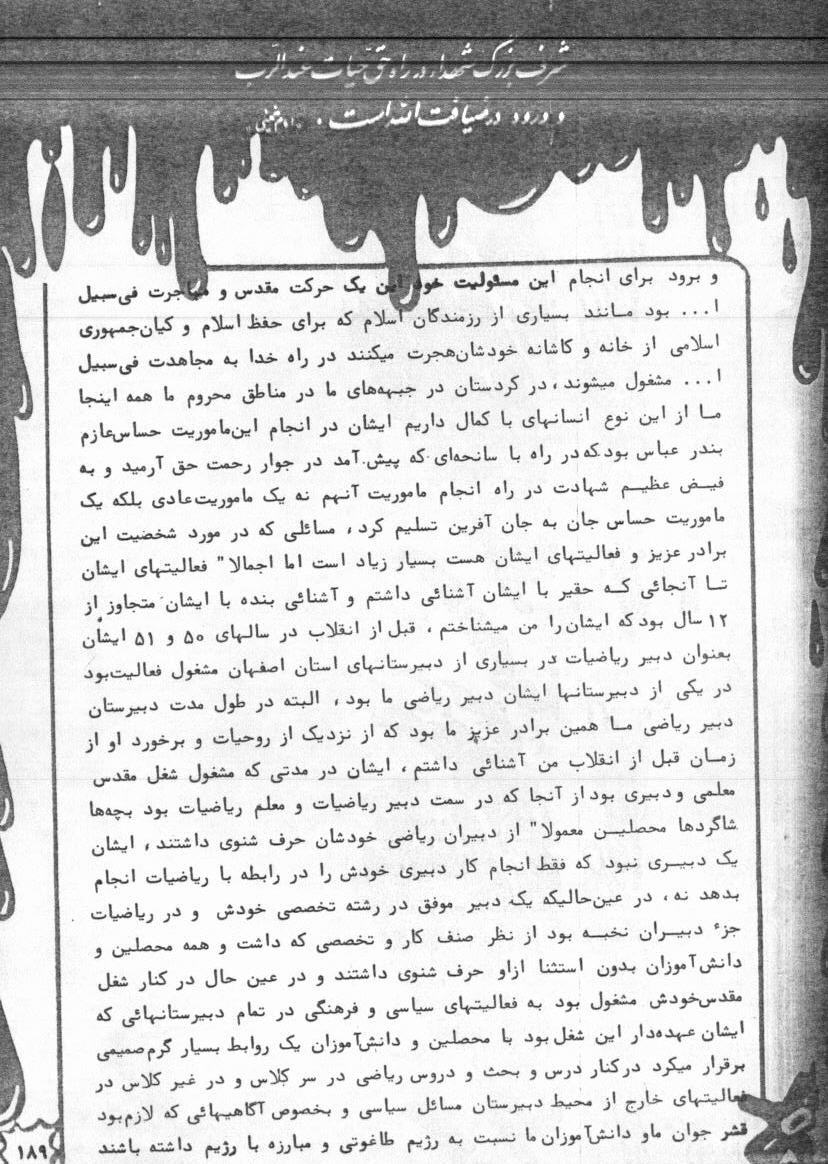 شرف بزرگ شهداء در راه حق حیات عند الرب
و ورود در ضیافت الله است . «امام خمینی»
و برود برای انجام این مسئولیت خود این یک حرکت مقدس و مهاجرت فی‌سبیل
ا... بود مـانند بسیاری از رزمندگان اسلام که برای حفظ اسلام و کیان‌جمهوری
اسلامی از خانه و کاشانه خودشان‌هجرت میکنند در راه خدا به مجاهدت فی‌سبیل
ا... مشغول میشوند ، در کردستان در جبهه‌های ما در مناطق محروم ما همه اینجا
مـا از این نوع انسانهای با کمال داریم ایشان در انجام این‌ماموریت حساس‌عازم
بندر عباس بود‌که در راه با سانحه‌ای که پیش‌آمد در جوار رحمت حق آرمید و به
فیـض عظیـم شهادت در راه انجام ماموریت آنهم نه یک ماموریت‌عادی بلکه یک
ماموریت حساس جان به جان آفرین تسلیم کرد ، مسائلی که در مورد شخصیت این
برادر عزیز و فعالیتهای ایشان هست بسیار زیاد است اما اجمالا" فعالیتهای ایشان
تـا آنجائی کـه حقیر با ایشان آشنائی داشتم و آشنائی بنده با ایشان متجاوز از
۱۲ سال بود که ایشان را من میشناختم ، قبل از انقلاب در سالهای ۵۰ و ۵۱ ایشان
بعنوان دبیر ریاضیات در بسیاری از دبیرستانهای استان اصفهان مشغول فعالیت‌بود
در یکی از دبیرستانها ایشان دبیر ریاضی ما بود ، البته در طول مدت دبیرستان
دبیر ریاضی مـا همین برادر عزیز ما بود که از نزدیک از روحیات و برخورد او از
زمـان قبل از انقلاب من آشنائی داشتم ، ایشان در مدتی که مشغول شغل مقدس
معلمی و دبیری بود از آنجا که در سمت دبیر ریاضیات و معلم ریاضیات بود بچه‌ها
شاگردها محصلیـن معمولا" از دبیران ریاضی خودشان حرف شنوی داشتند ، ایشان
یک دبیـری نبود که فقط انجام کار دبیری خودش را در رابطه با ریاضیات انجام
بدهد نه ، در عین‌حالیکه یک دبیر موفق در رشته تخصصی خودش و در ریاضیات
جزء دبیـران نخبـه بود از نظر صنف کار و تخصصی که داشت و همه محصلین و
دانش‌آموزان بدون استثنا ازاو حرف شنوی داشتند و در عین حال در کنار شغل
مقدس‌خودش مشغول بود به فعالیتهای سیاسی و فرهنگی در تمام دبیرستانهائی که
ایشان عهده‌دار این شغل بود با محصلین و دانش‌آموزان یک روابط بسیار گرم‌صمیمی
برقرار میکرد درکنار درس و بحث و دروس ریاضی در سر کلاس و در غیر کلاس در
فعالیتهای خارج از محیط دبیرستان مسائل سیاسی و بخصوص آگاهیهائی که لازم‌بود
قشر جوان ماو دانش‌آموزان ما نسبت به رژیم طاغوتی و مبارزه با رژیم داشته باشند
۱۸۹